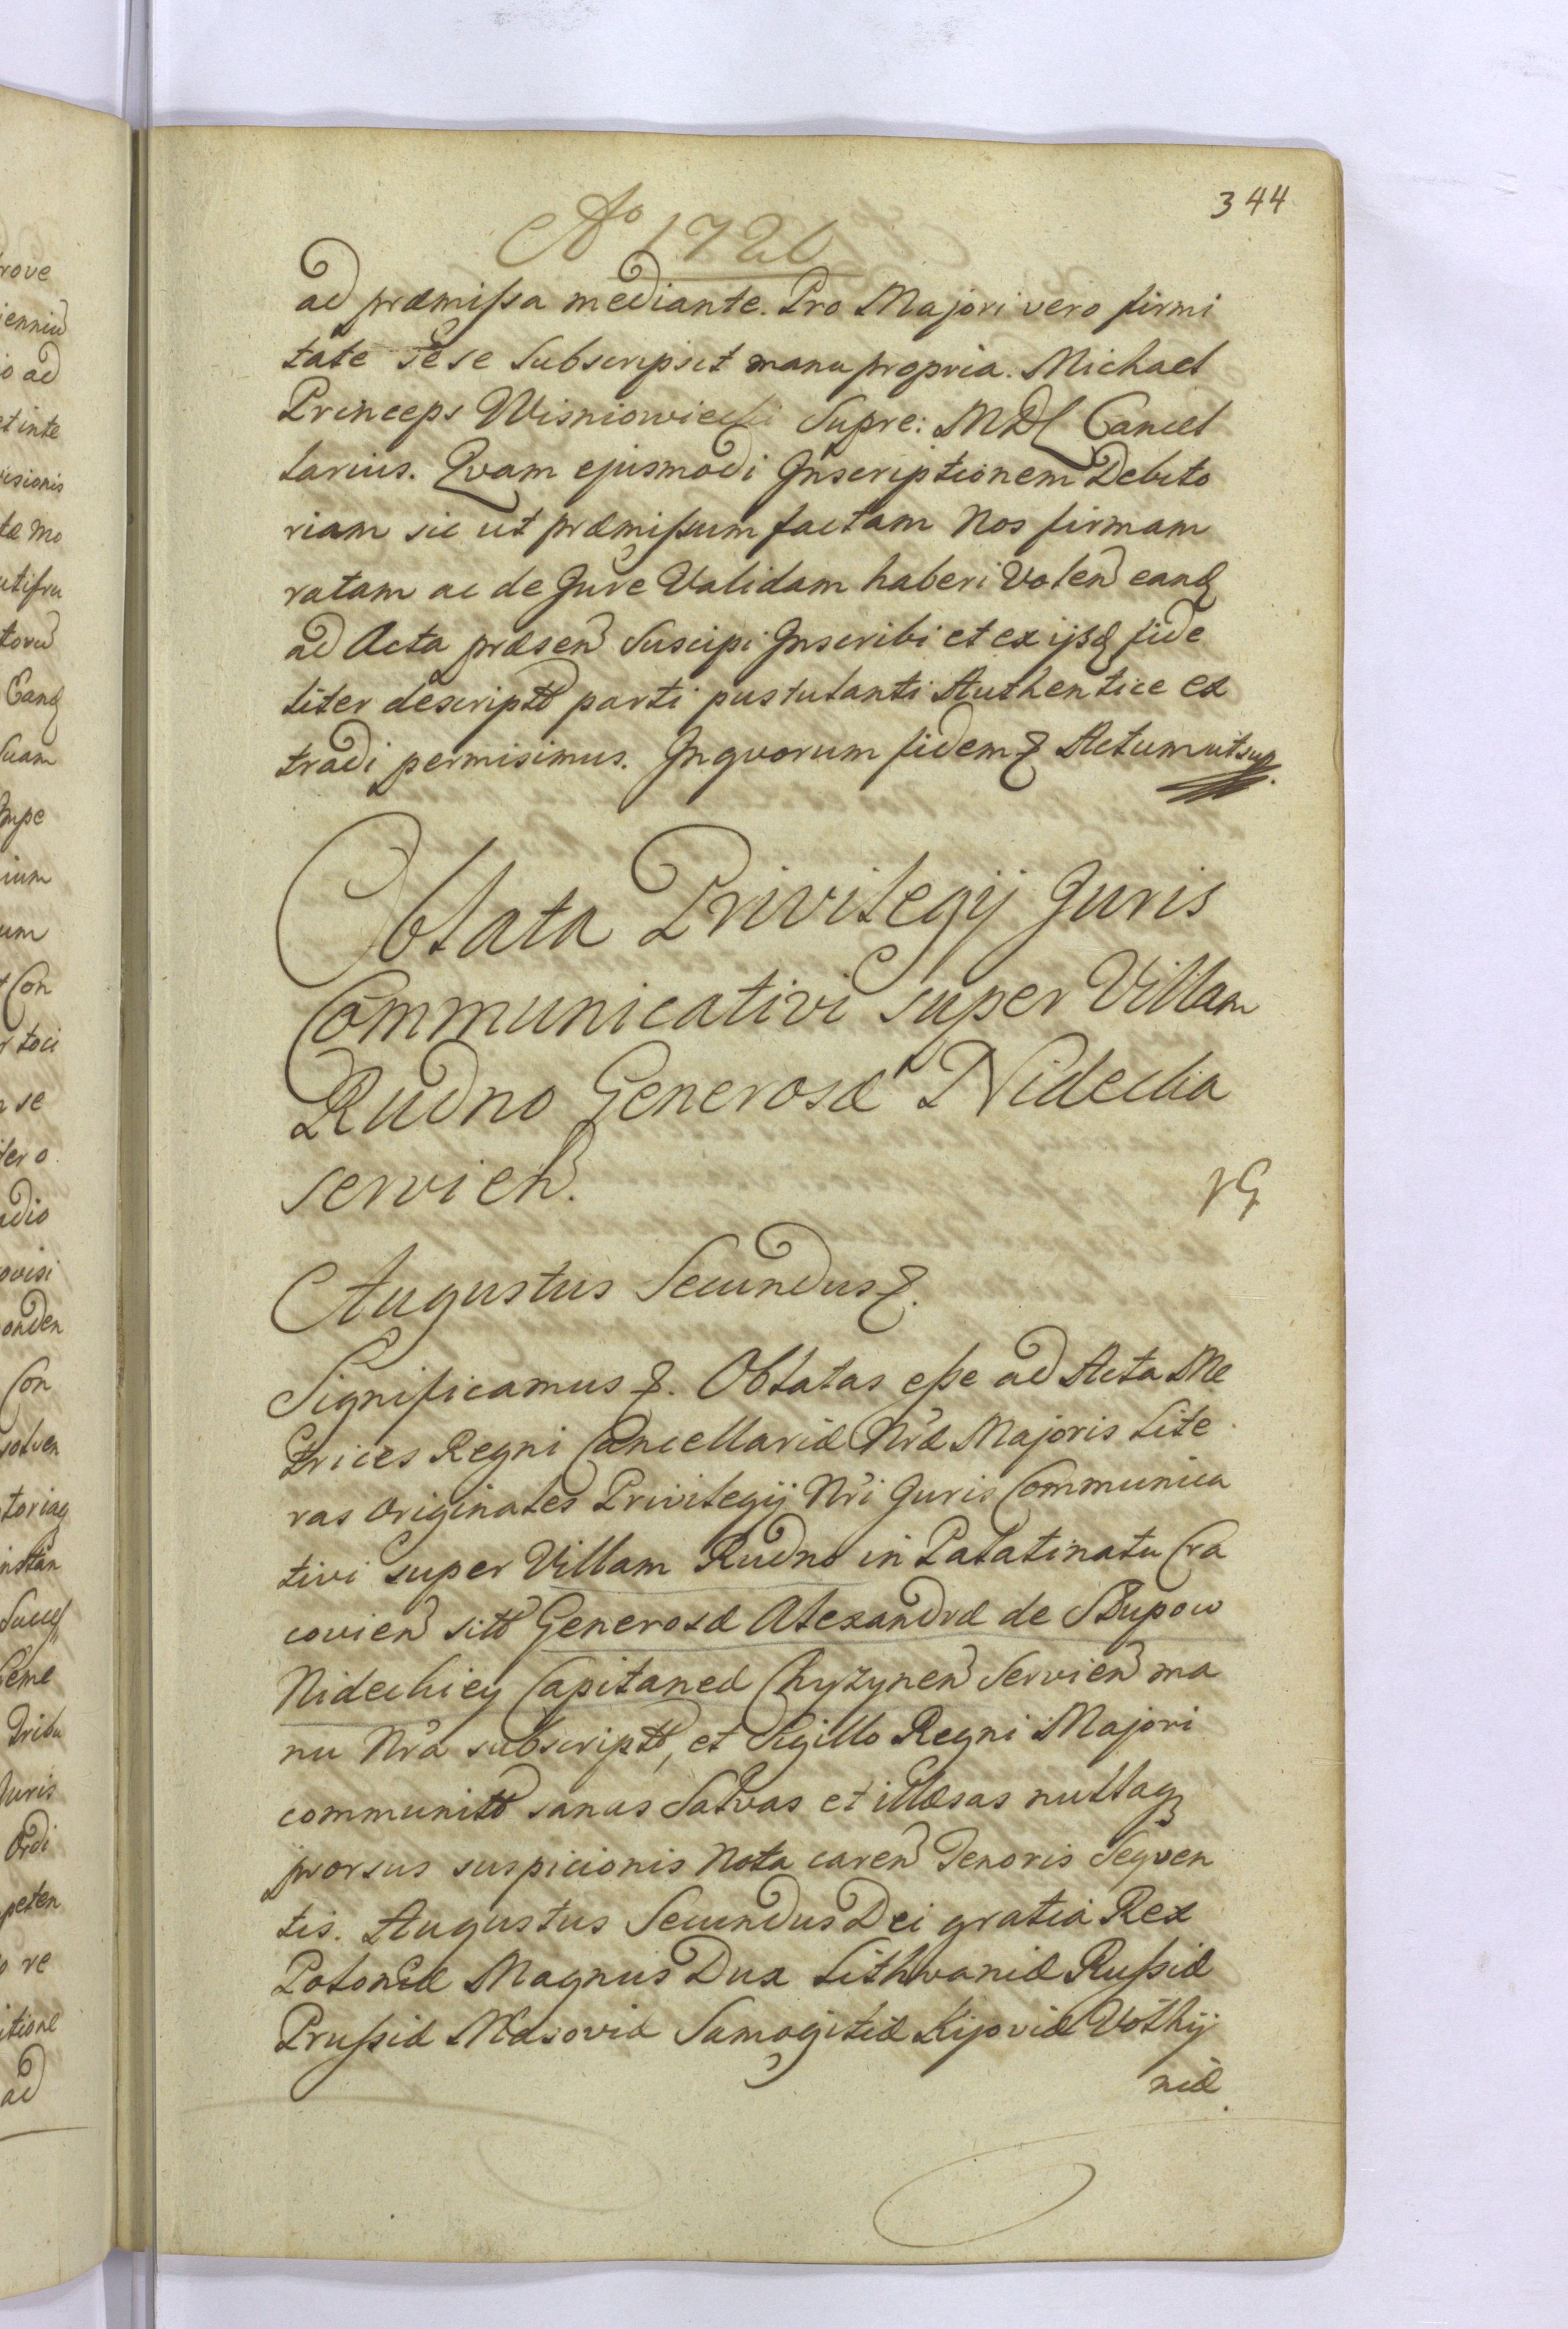 344
Ao 1726
ad præmissa mediante. Pro Majori vero firmi
tate sese subscripsit manu propria. Michael
Princeps Wisniowiecki Supre: MDL Cancel
larius. Qvam ejusmodi Inscriptionem Debito
riam sic ut præmissum factam Nos firmam
ratam ac de Jure Validam haberi Volen eandq
ad Acta præsen Suscipi Inscribi et ex ijsdq fide
liter descriptt parti pustulanti Authentice ex
tradi permisimus. In qvorum fidem & Actum ut sup.
Oblata Privilegij Juris
Communicativi super Villam
Rudno Generosæ Nidecka
servien.
Augustus Secundus &.
Significamus &. Oblatas esse ad Acta Me
trices Regni Cancellariæ Nræ Majoris Lite
ras originales Privilegij Nri Juris Communica
tivi super Villam Rudno in Palatinatu Cra
covien sitt Generosæ Alexandræ de Slupow
Nideckiey Capitaneæ Chyzynen Servien ma
nu Nra subscriptt, et Sigillo Regni Majori
communitt sanas Salvas et illæsas nullaq
prorsus suspicionis Nota caren Tenoris Seqven
tis. Augustus Secundus Dei gratia Rex
Poloniæ Magnus Dux Lithvaniæ Russiæ
Prussiæ Masoviæ Samogitiæ Kijoviæ Volhÿ
niæ.
rove
enniu
o ad
tinte
isionis
tæ mo
utifru
toru
Eandq
Suam
Impe
ium
um
Con
toci
se
vero
adio
ovisi
onden
Con
solven
toriaq
instan
Succes
Seme
Tribu
Juris
Ordi
peten
re
itione
ad